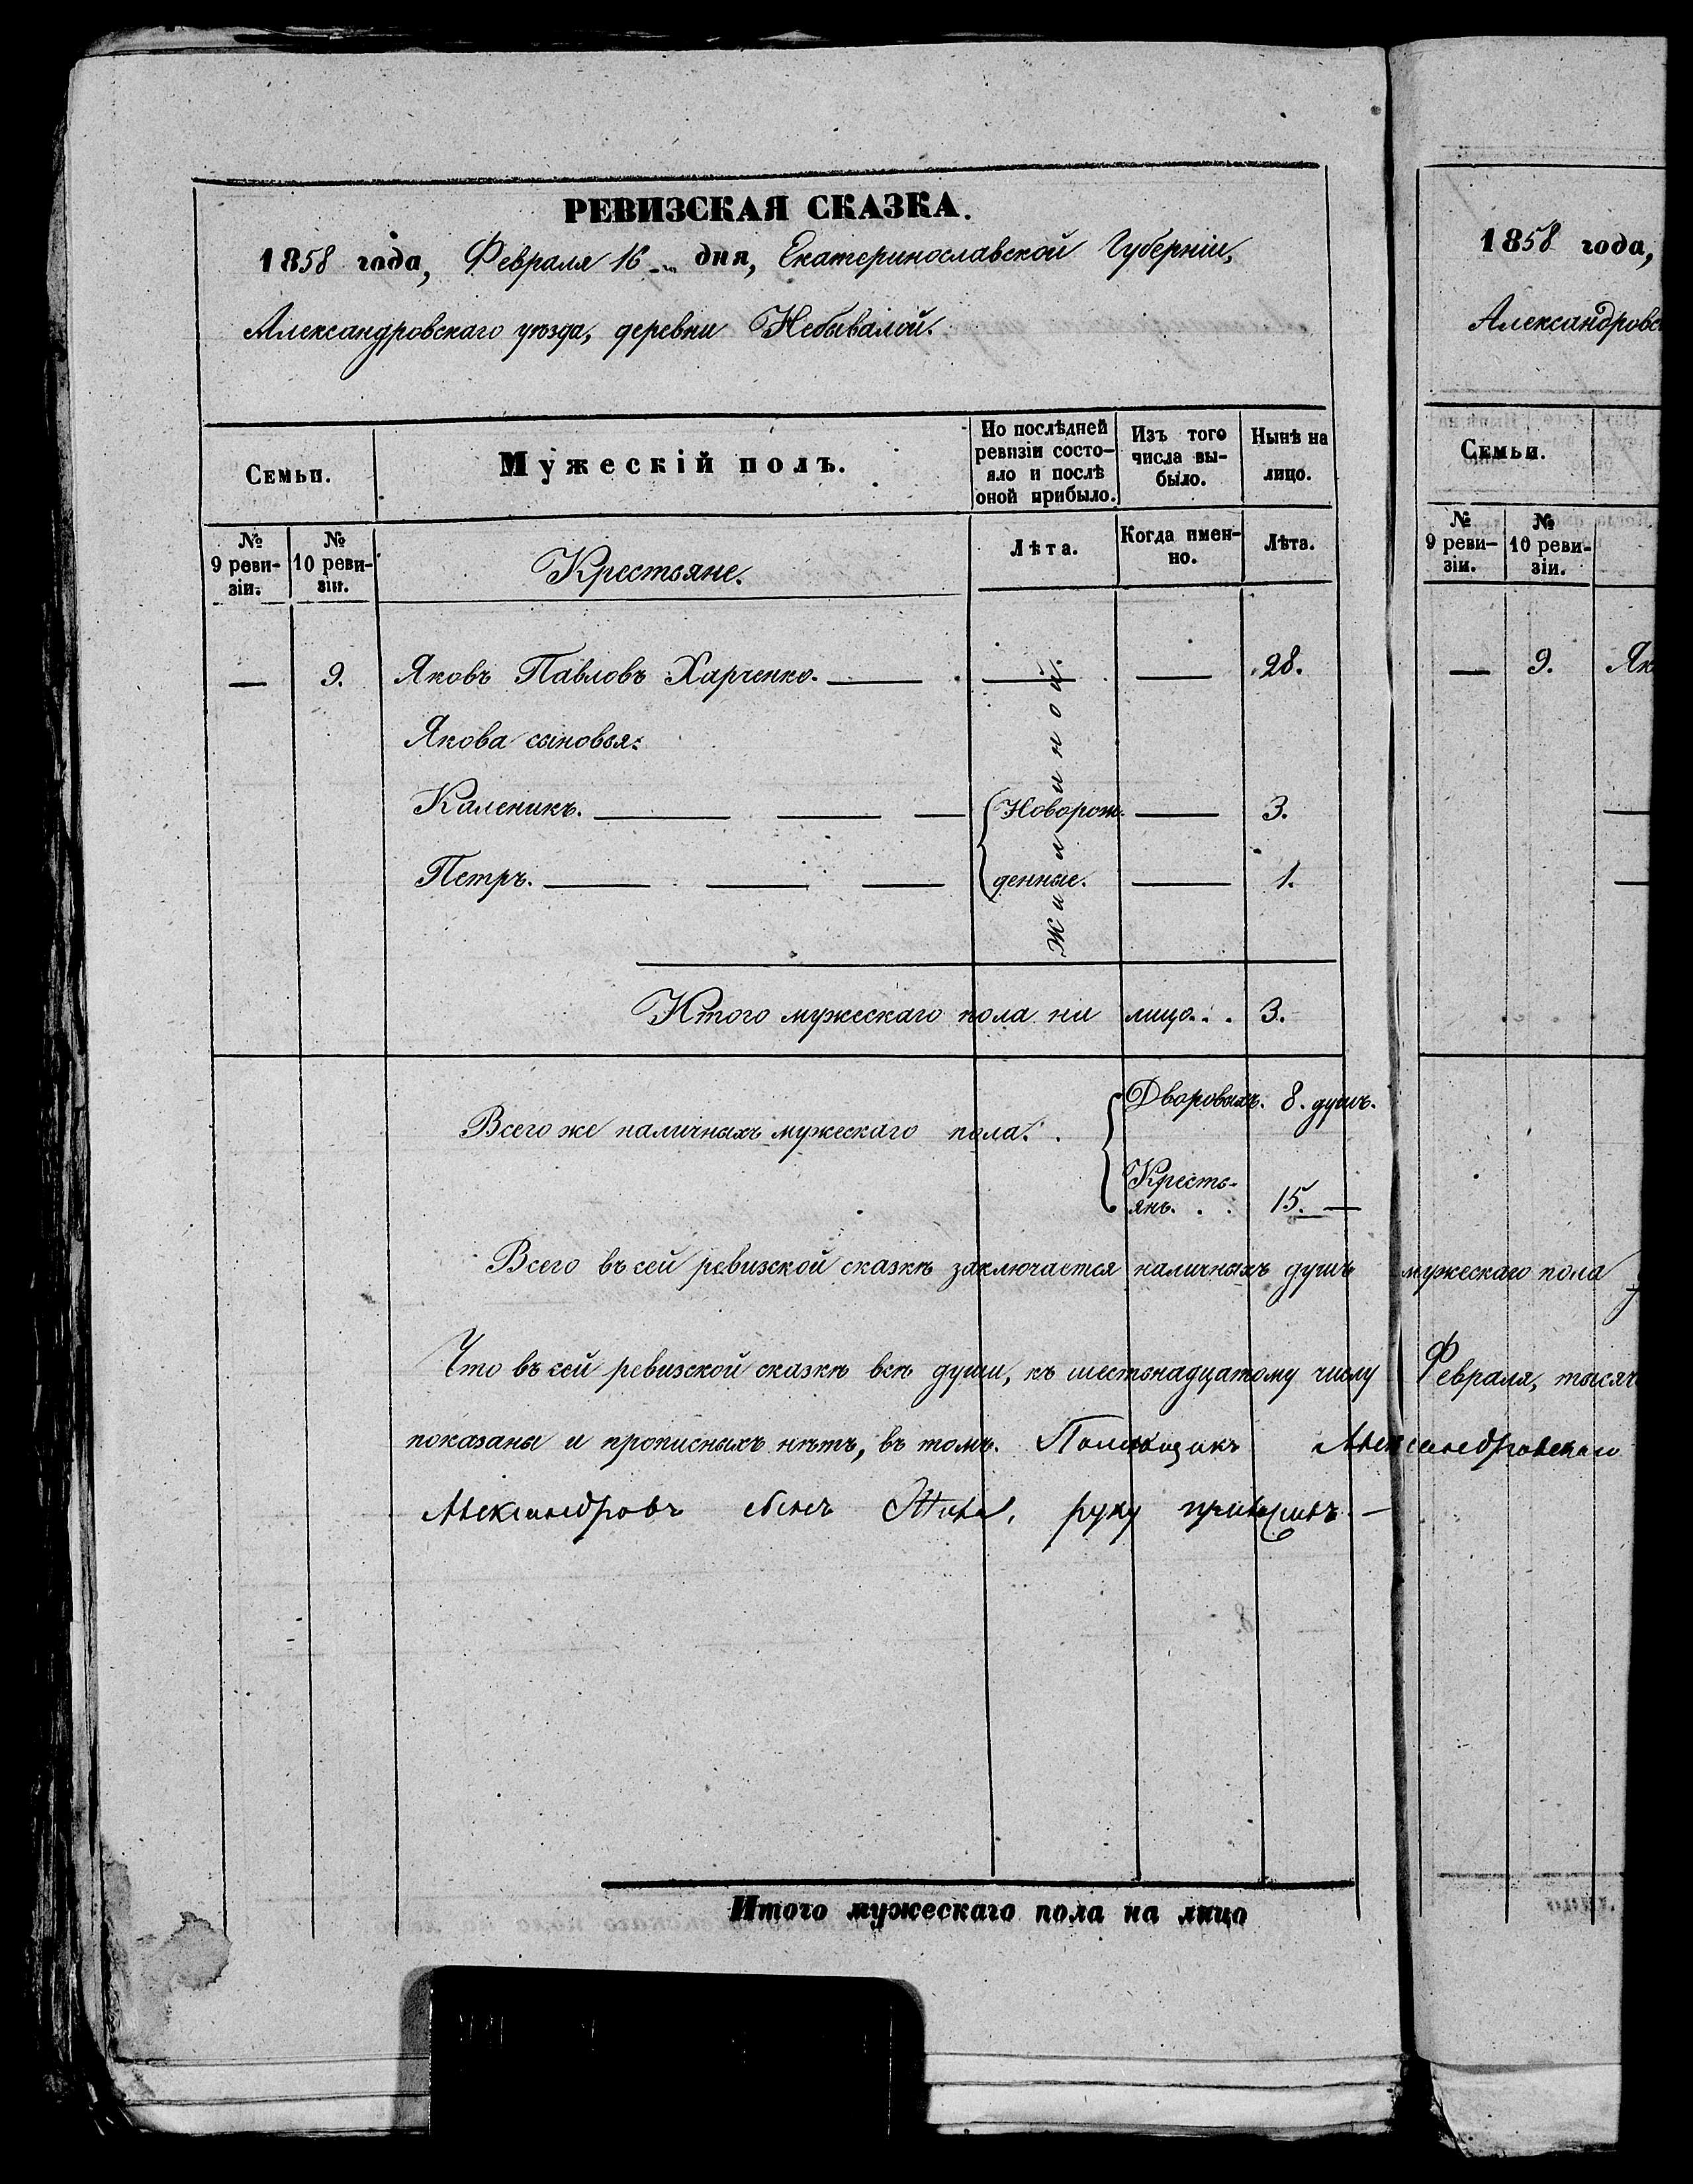 РЕВИЗСКАЯ СКАЗКА.
1858 года, Февраля 16 дня, Екатеринославской Губерніи,
Александровскаго уѣзда, деревни Небывалой.
Семьи.
Мужескій полъ.
По послѣдней ревизіи состо-
яло и послѣ оной прибыло.
Изъ того числа вы-
было.
Нынѣ на лицо.
№ 9 реви-
зіи.
№ 10 реви-
зіи.
Крестьяне.
Лѣта.
Когда имен-
но.
Лѣта.
— 9. Яковъ Павловъ Харченко. — — — 28.
Якова сыновья:
Каленикъ. — — — Новорож- — 3.
Петръ. — — — денные. — 1.
Итого мужескаго пола на лицо. . . 3.
Всего же наличныхъ мужескаго пола. .
Дворовыхъ. 8. душъ.
Кресть-
янъ. . . 15. —
Всего въ сей ревизской сказкѣ заключается наличныхъ душъ мужескаго пола
Что въ сей ревизской сказкѣ всѣ души, къ шестьнадцатому числу Февраля, тысяч
показаны и прописныхъ нѣтъ, въ томъ. Помѣщикъ Александровскаго
Александровъ сынъ руку приложилъ. —
Итого мужескаго пола на лицо
1858 года,
Александровс
Семьи.
№ 9 реви-
зіи.
№ 10 реви-
зіи.
— 9. Як